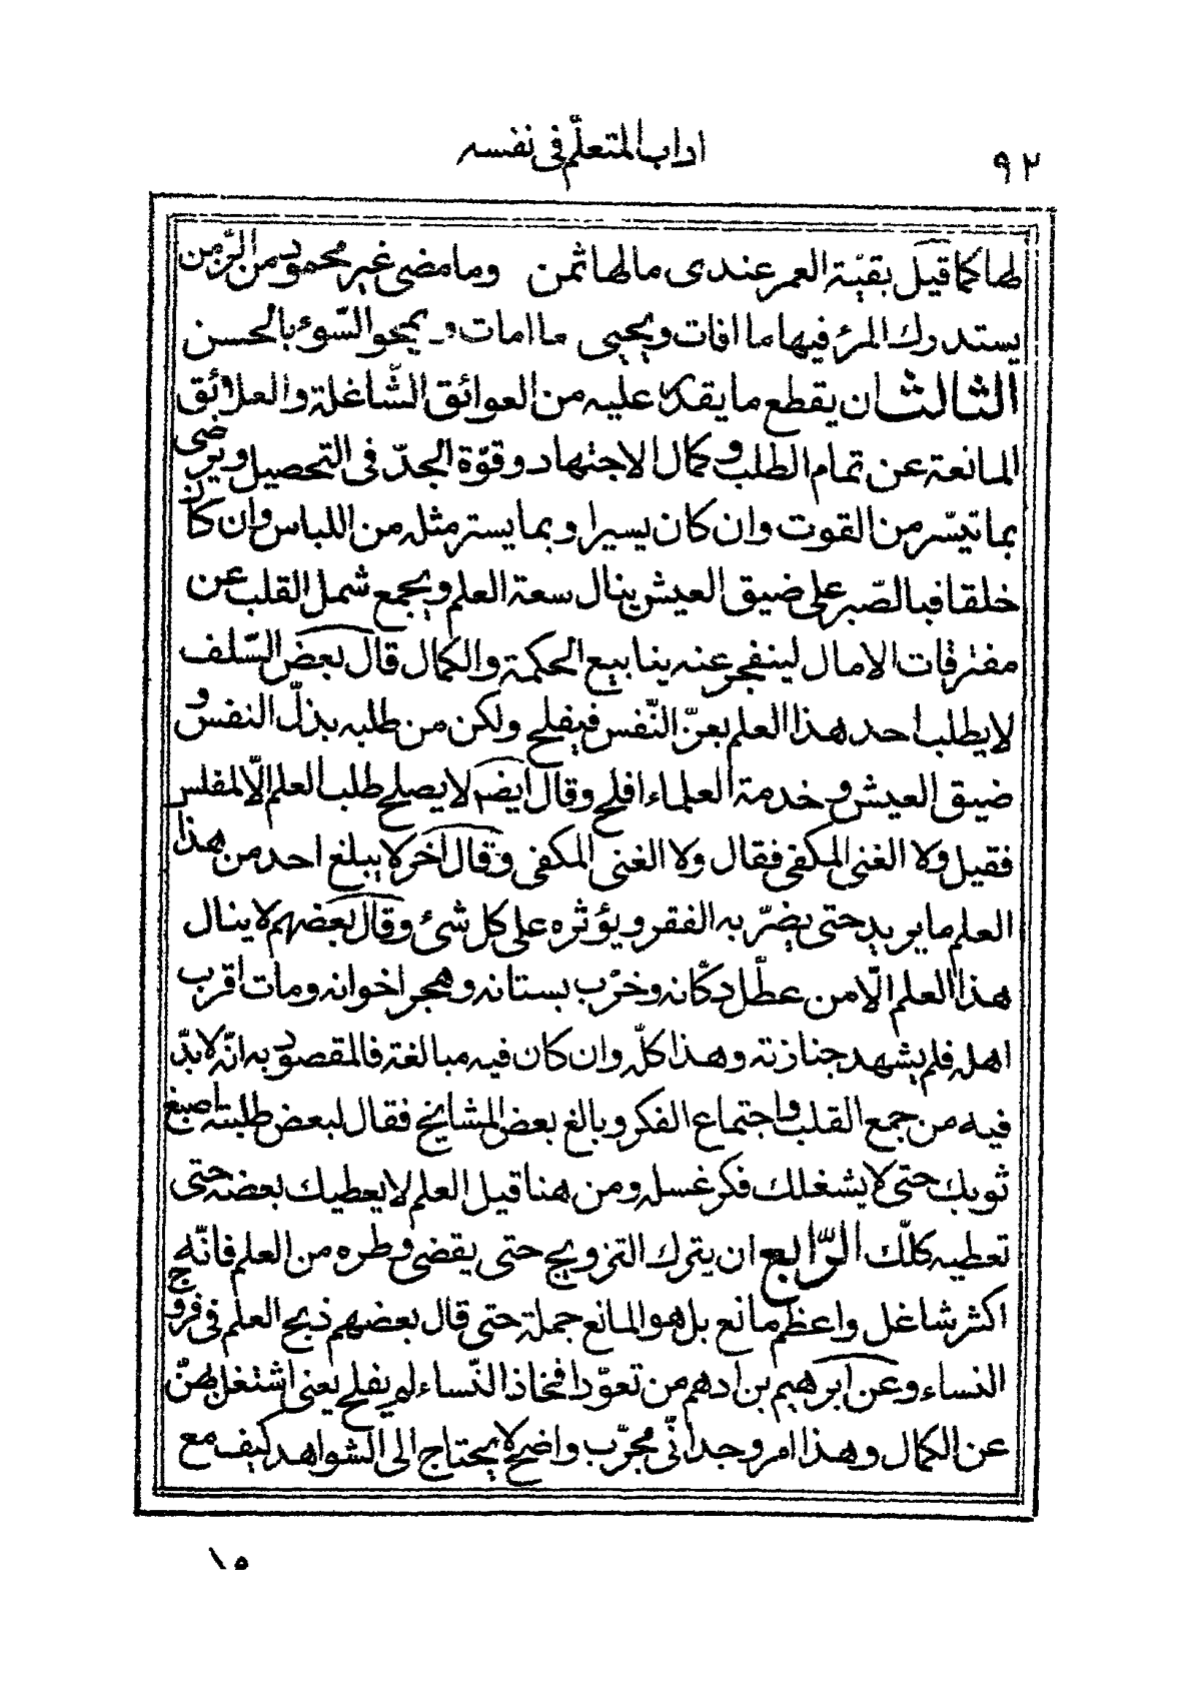 ٩٢
اداب المتعلّم فى نفسه
لها كما قيل بقيّة العمر عندى مالها ثمن وما مضى غير محمود من الزّمن
يستدرك المرء فيها ما افات ويحيى ما امات و يمحو السّوء بالحسن
الثالث ان يقطع ما يقدر عليه من العوائق الشّاغلة والعلائق
المانعة عن تمام الطلب وكمال الاجتهاد وقوّة الجدّ فى التحصيل ويرضى
بما تيسّر من القوت وان كان يسيرا وبما يستر مثله من اللباس وان كان
خلقا فبالصّبر على ضيق العيش ينال سعة العلم ويجمع شمل القلب عن
مفترقات الامال لينفجر عنه ينابيع الحكمة والكمال قال بعض السّلف
لا يطلب احد هذا العلم بعزّ النّفس فيفلح ولكن من طلبه بذلّ النفس و
ضيق العيش وخدمة العلماء افلح وقال ايضم لا يصلح طلب العلم الّا لمفلس
فقيل ولا الغنى المكفى فقال ولا الغنى المكفى وقال اخر لا يبلغ احد من هذا
العلم ما يريد حتى يضرّ به الفقر ويؤثره على كل شئ وقال بعضهم لا ينال
هذا العلم الّا من عطّل دكّانه وخرّب بستانه وهجر اخوانه ومات اقرب
اهله فلم يشهد جنازته وهذا كلّه وان كان فيه مبالغة فالمقصود به انّه لا بدّ
فيه من جمع القلب واجتماع الفكر وبالغ بعض المشايخ فقال لبعض طلبته اصبغ
ثوبك حتى لا يشغلك فكر غسله ومن هنا قيل العلم لا يعطيك بعضه حتى
تعطيه كلّك الرّابع ان يترك التزويج حتى يقضى وطره من العلم فانّه
اكثر شاغل واعظم مانع بل هو المانع جملة حتى قال بعضهم ذبح العلم فى فروج
النساء وعن ابرهيم بن ادهم من تعوّد افخاذ النّساء لم يفلح يعنى اشتغل بهنّ
عن الكمال وهذا امر وجدانّى مجرّب واضح لا يحتاج الى الشواهد كيف مع
١٥